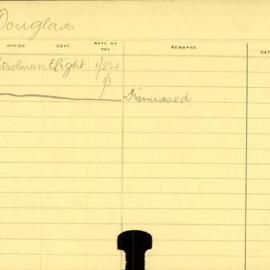 Douglas
OFFICE DEPT RATE OF PAY REMARKS DAT
trolman Eight 1/24
1/3
Dismissed